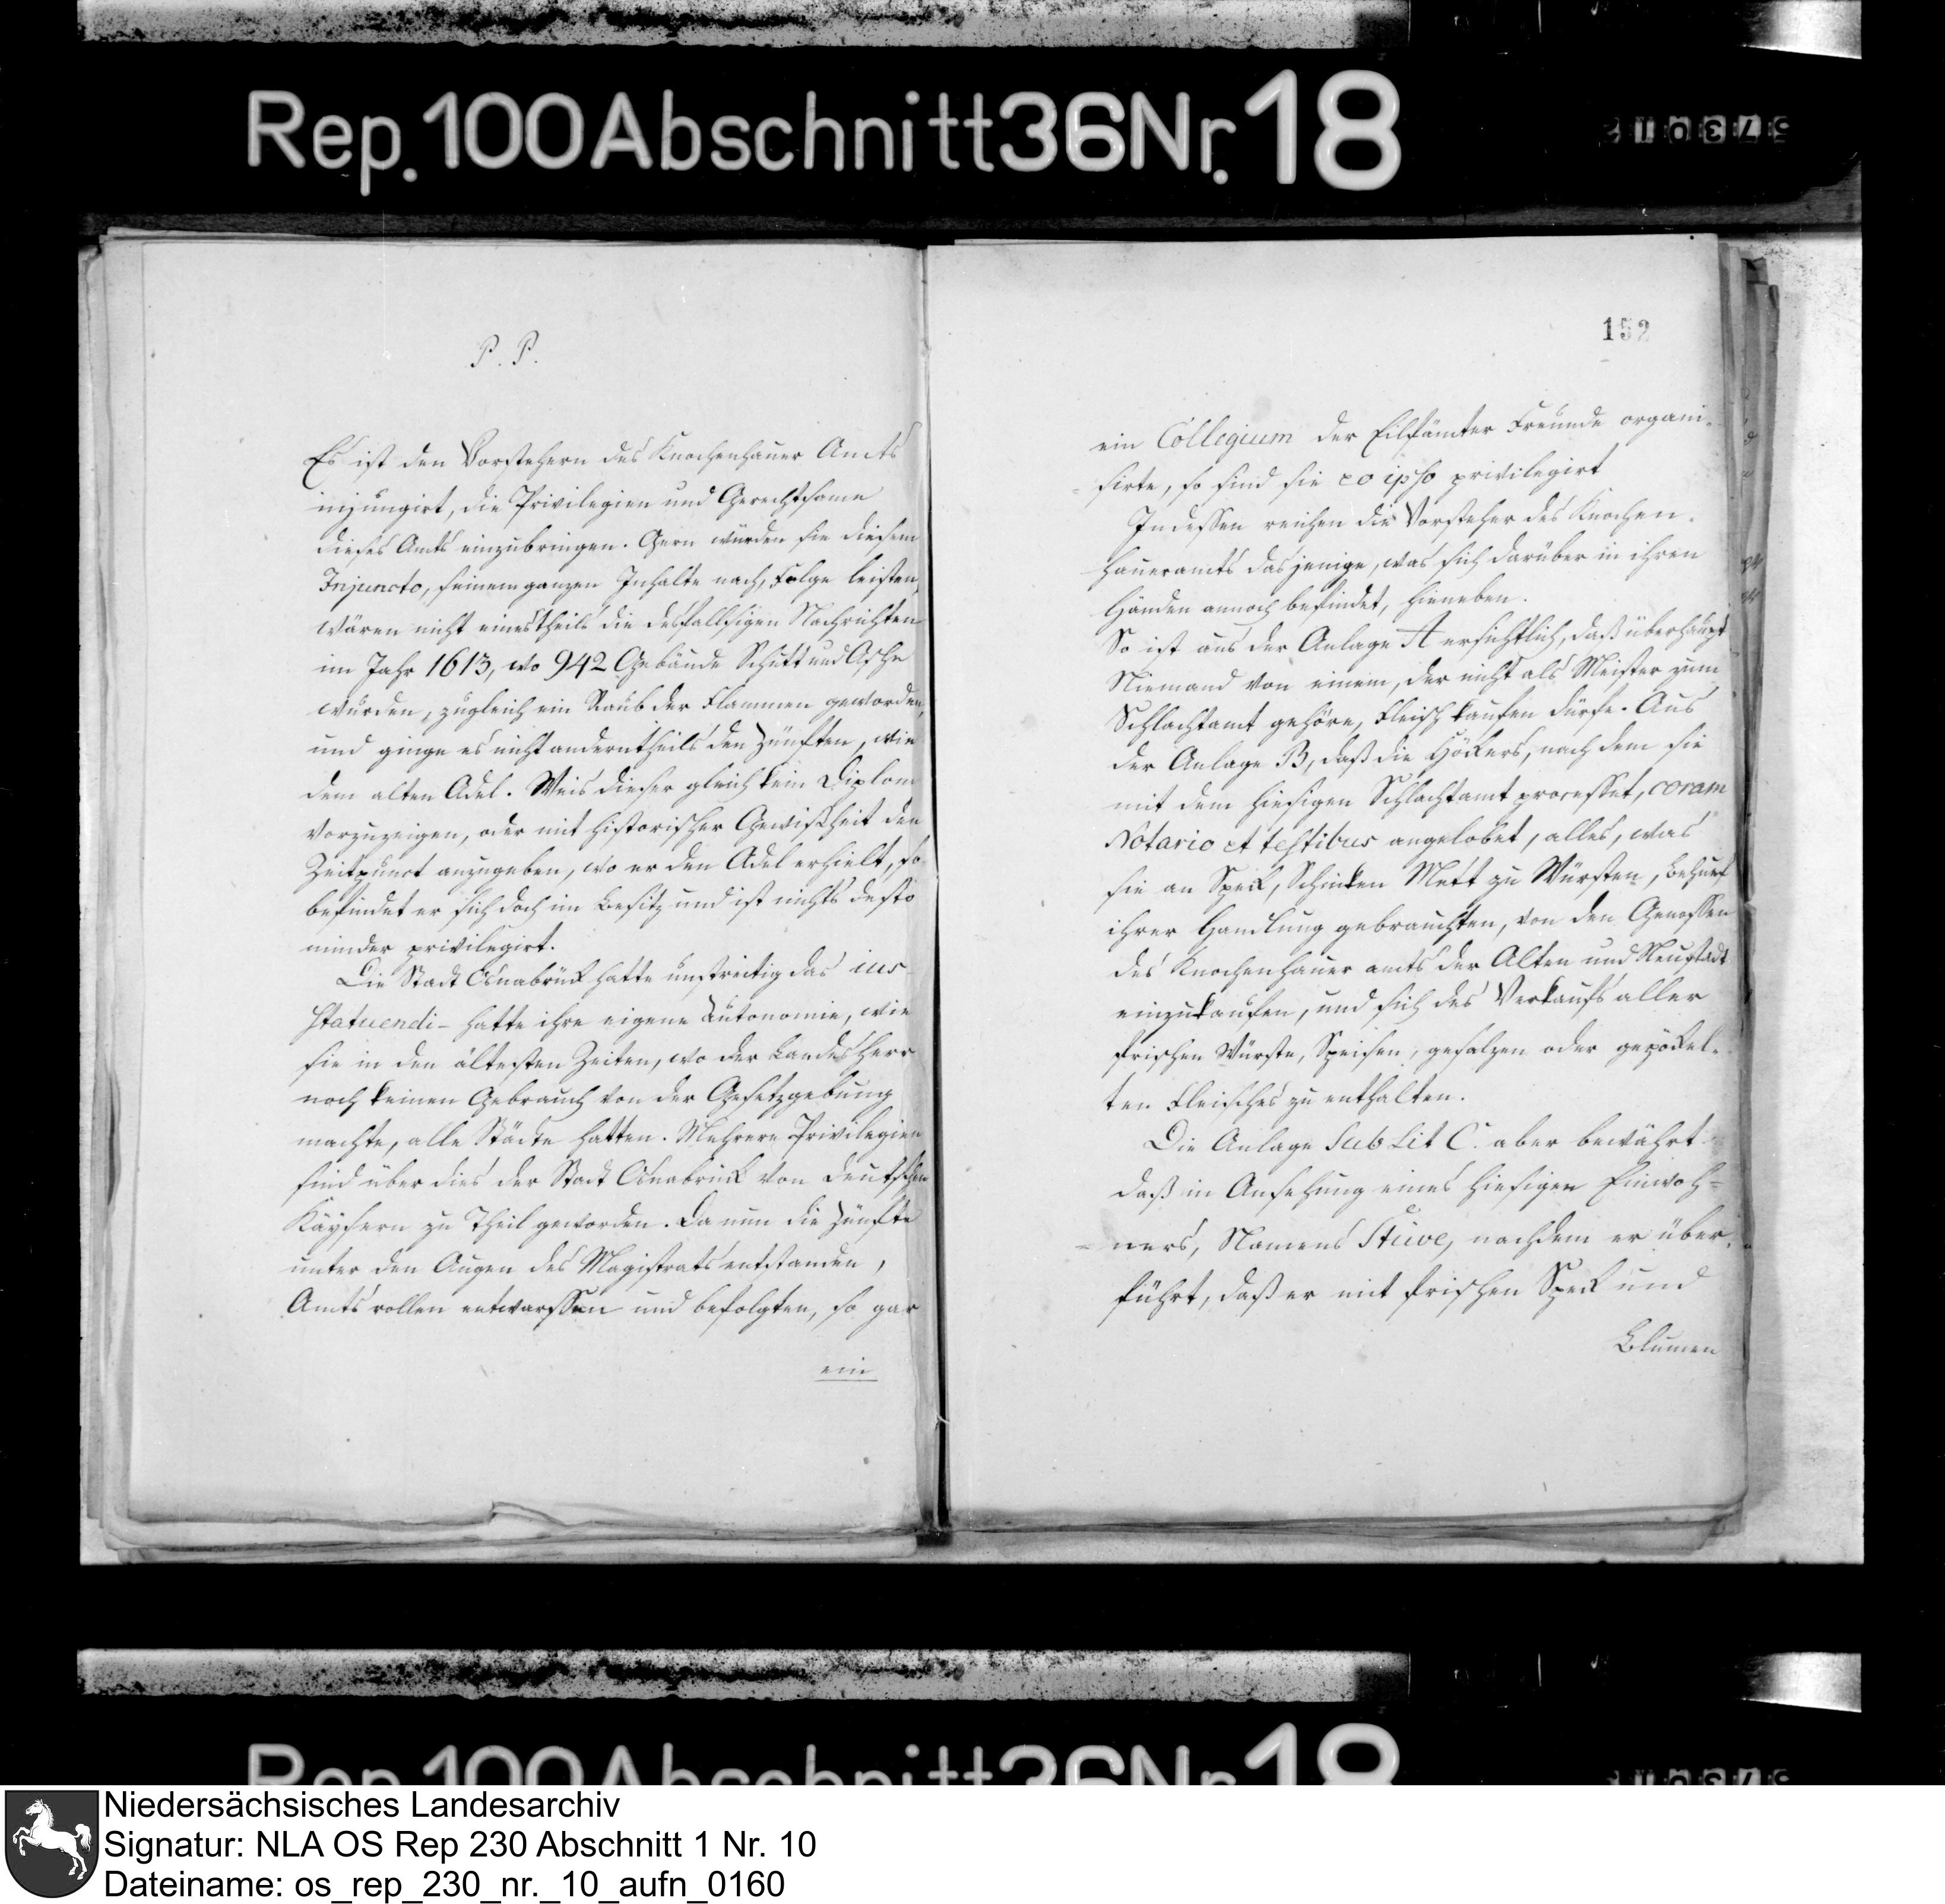 Rep. 100 Abschnitt 36 Nr. 18
P. P.
Es ist den Vorstehern des Knochenhauer Amts
injungirt, die Privilegien und Gerechtsame
dieses Amts einzubringen. Gern würden sie diesem
Injuncto, seinem ganzen Inhalte nach, Folge leisten,
wären nicht einestheils die desfallsigen Nachrichten
im Jahr 1613, wo 942 Gebäude Schutt und Asche
wurden, zugleich ein Raub der Flammen geworden,
und ginge es nicht anderntheils den Zünften, wie
dem alten Adel. Weis dieser gleich kein Diplom
vorzuzeigen, oder mit historischer Gewißheit den
Zeitpunct anzugeben, wo er den Adel erhielt, so
befindet er sich doch im Besitz und ist nichts desto
minder privilegirt.
Die Stadt Osnabrück hatte unstreitig das ius
statuendi - hatte ihre eigene Autonomie, wie
sie in den ältesten Zeiten, wo der Landesherr
noch keinen Gebrauch von der Gesetzgebung
machte, alle Städte hatten. Mehrere Privilegien
sind über dies der Stadt Osnabrück von deutschen
Kaysern zu Theil geworden. Da nun die Zünfte
unter den Augen des Magistrats entstanden,
Amts rollen entwarffen und befolgten, so gar
ein
152
ein Collegium der Eilfämter Freunde organi-
sirte, so sind sie eo ipso privilegirt
Indessen reichen die Vorsteher des Knochen-
haueramts dasjenige, was sich darüber in ihren
Händen annoch befindet, hieneben.
So ist aus der Anlage A ersichtlich, daß überhaupt
Niemand von einem, der nicht als Meister zum
Schlachtamt gehöre, Fleisch kaufen dürfe. Aus
der Anlage B, daß die Höckers, nach dem sie
mit dem hiesigen Schlachtamt processet, coram
Notario et testibus angelobet, alles, was
sie an Speck, Schinken Mett zu Würsten, behuef
ihrer Handlung gebrauchten, von den Genossen
des Knochenhauer amts der Alten und Neustadt
einzukaufen, und sich des Verkaufs aller
frischen Würste, Speisen, gesalzen oder gepökel-
ten Fleisches zu enthalten.
Die Anlage Sub Lit C. aber bewährt
daß in Ansehung eines hiesigen Einwoh=
=ners, Namens Stüve, nachdem er über-
führt, daß er mit frischen Speck und
Blumen
Rep. 100 Abschnitt 36 Nr. 18
Niedersächsisches Landesarchiv
Signatur: NLA OS Rep 230 Abschnitt 1 Nr. 10
Dateiname: os_rep_230_nr._10_aufn_0160